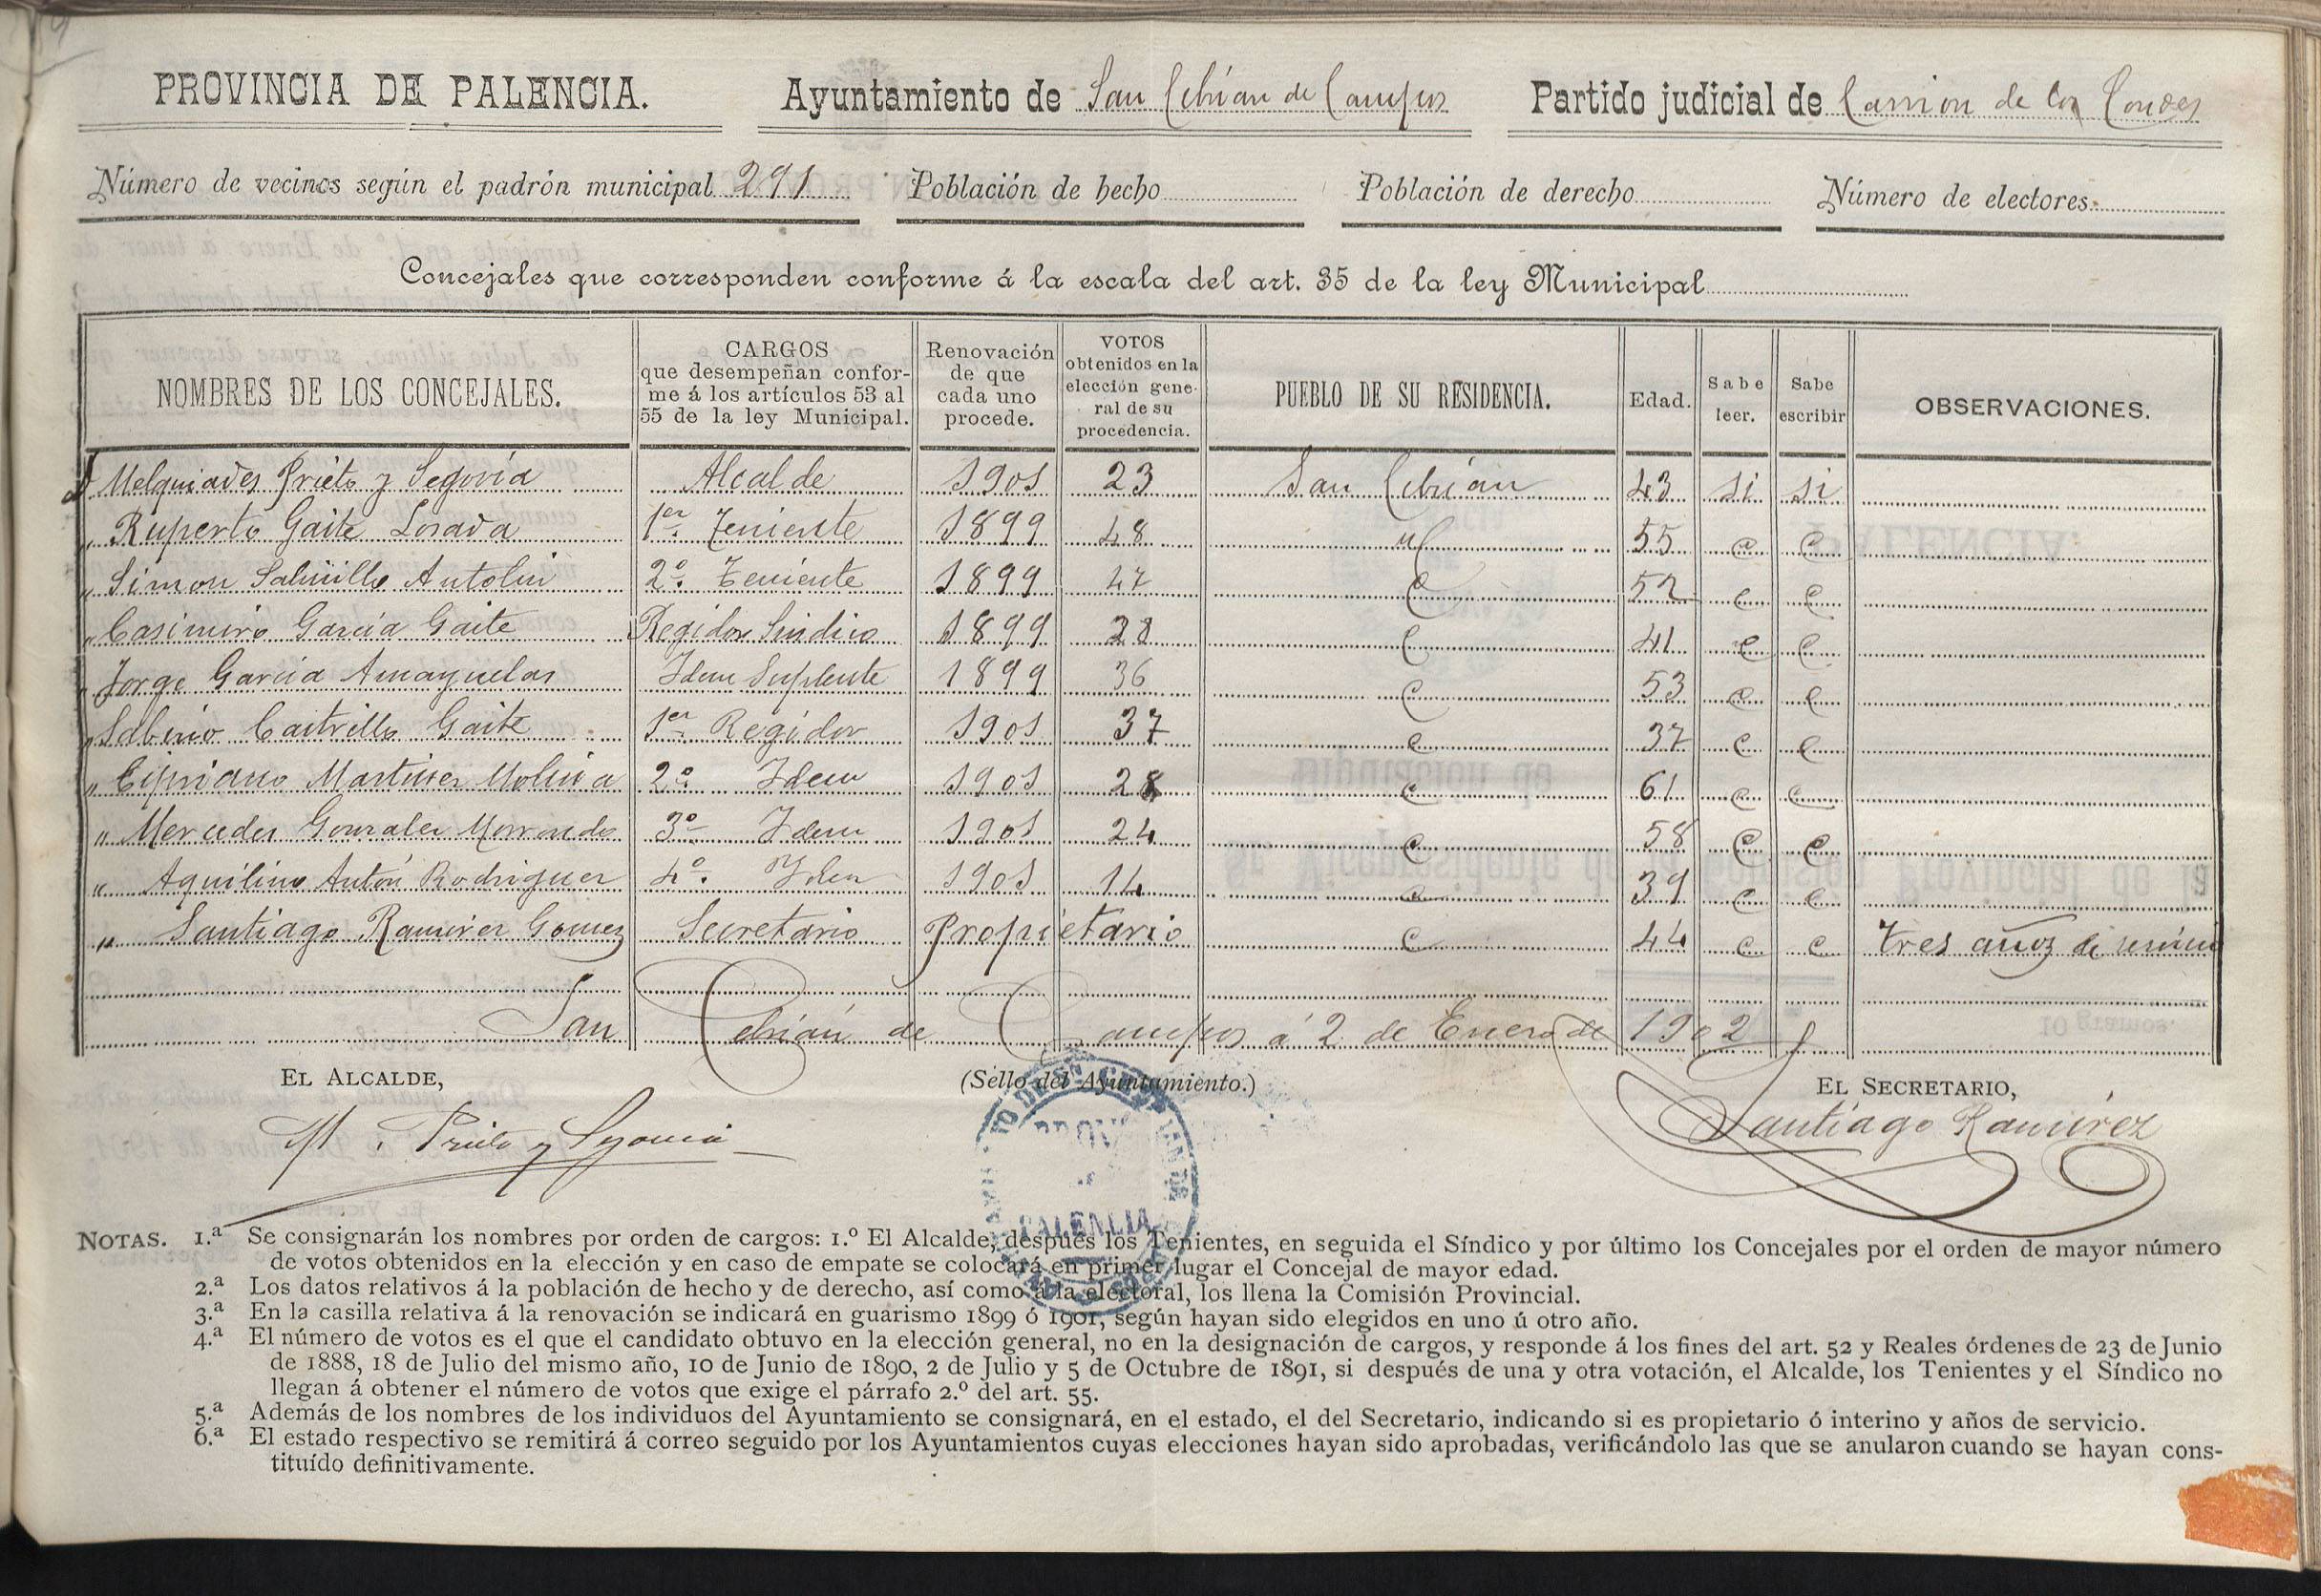 PROVINCIA DE PALENCIA. Ayuntamiento de San Cebrían de Campos Partido judicial de Carrion de los Condes
Número de vecinos según el padrón municipal 291 Población de hecho Población de derecho Número de electores
Concejales que corresponden conforme á la escala del art. 35 de la ley Municipal
NOMBRES DE LOS CONCEJALES. CARGOS que desempeñan conforme á los artículos 53 al 55 de la ley Municipal. Renovación de que cada uno procede. VOTOS obtenidos en la elección general de su procedencia. PUEBLO DE SU RESIDENCIA. Edad. Sabe leer. Sabe escribir OBSERVACIONES.
Melquiades Prieto y Segovia Alcalde 1901 23 San Cebrían 43 si si
" Ruperto Gaite Losada 1er Teniente 1899 48 55
" Simon Antolin 2º Teniente 1899 47 52
" Casimiro García Gaite Regidor Sindico 1899 28 41
" Jorge García Amayuelas Idem Suplente 1899 36 53
" Sabino Castrillo Gaite 1er Regidor 1901 37 37
" Cipriano Martinez Molina 2º Idem 1901 28 61
" Mercedes Gonzalez 3º Idem 1901 24 58
" Aquilino Antón Rodriguez 4º Idem 1901 14 39
" Santiago Ramirez Gomez Secretario Propietario 44 tres años de servicio
San Cebrían de Campos á 2 de Enero de 1902
EL ALCALDE, (Sello del Ayuntamiento.) EL SECRETARIO,
M. Prieto y Segovia Santiago Ramirez
PALENCIA
NOTAS. 1.ª Se consignarán los nombres por orden de cargos: 1.º El Alcalde, después los Tenientes, en seguida el Síndico y por último los Concejales por el orden de mayor número
de votos obtenidos en la elección y en caso de empate se colocará en primer lugar el Concejal de mayor edad.
2.ª Los datos relativos á la población de hecho y de derecho, así como á la electoral, los llena la Comisión Provincial.
3.ª En la casilla relativa á la renovación se indicará en guarismo 1899 ó 1901, según hayan sido elegidos en uno ú otro año.
4.ª El número de votos es el que el candidato obtuvo en la elección general, no en la designación de cargos, y responde á los fines del art. 52 y Reales órdenes de 23 de Junio
de 1888, 18 de Julio del mismo año, 10 de Junio de 1890, 2 de Julio y 5 de Octubre de 1891, si después de una y otra votación, el Alcalde, los Tenientes y el Síndico no
llegan á obtener el número de votos que exige el párrafo 2.º del art. 55.
5.ª Además de los nombres de los individuos del Ayuntamiento se consignará, en el estado, el del Secretario, indicando si es propietario ó interino y años de servicio.
6.ª El estado respectivo se remitirá á correo seguido por los Ayuntamientos cuyas elecciones hayan sido aprobadas, verificándolo las que se anularon cuando se hayan cons-
tituído definitivamente.